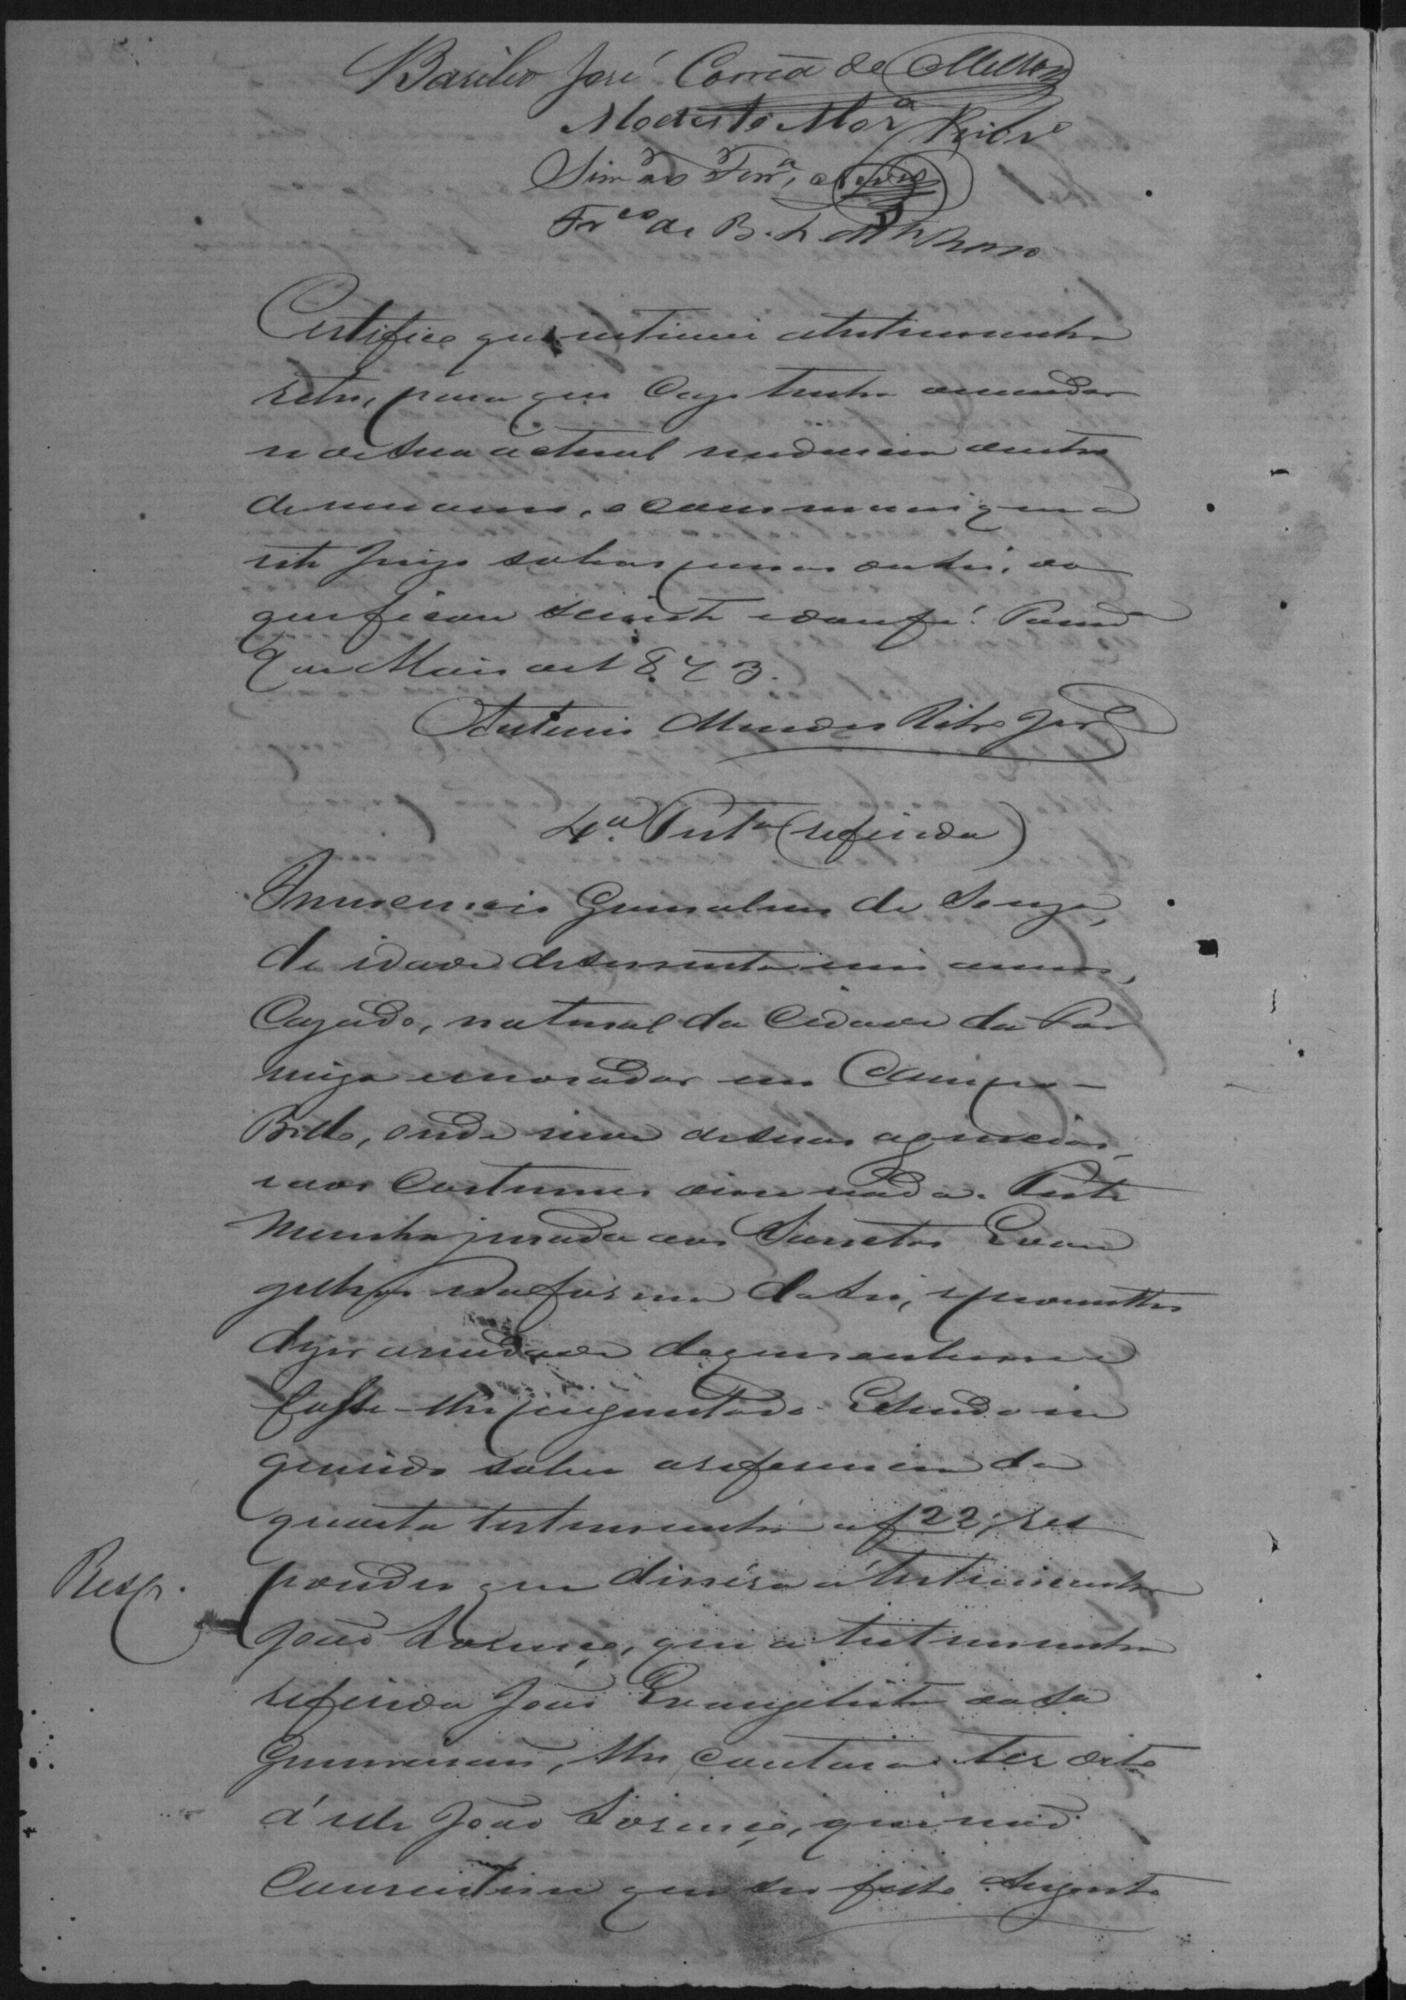 Basilio José Corrêa de Mello
Modesto Mor.ª
Simão Ferr.ª
Fr.co de B. L.
Certifico que intimei a testemunha
retro, para que caso tenha de mudar
se de sua actual residencia dentro
de um anno, o communique a
este Juizo sob as penas da lei, do
que ficou sciente e dou fé.
de Maio de 1873.
Antonio Mendes Ribr.o Jor
4.a Test.a (referida)
Innocencio Gonsalves de Souza,
de idade de sessenta e um annos,
Cazado, natural da Cidade da For
miga e morador em Campo-
Bello, onde vive de suas agencias,
e aos costumes disse nada. Teste
munha jurada aos Sanctos Evan
gelhos na forma da lei, e prometteu
dizer a verdade do que soubesse e
fosse-lhe perguntado. E sendo in
querido sobre a referencia da
quarta testemunha a f 22, res
Resp.
pondeu que dissera á testemunha
João Lorenço, que a testemunha
referida João Evangelista da
lhe contara ter dito
á elle João Lorenço, que não
consentisse que seu filho Augusto